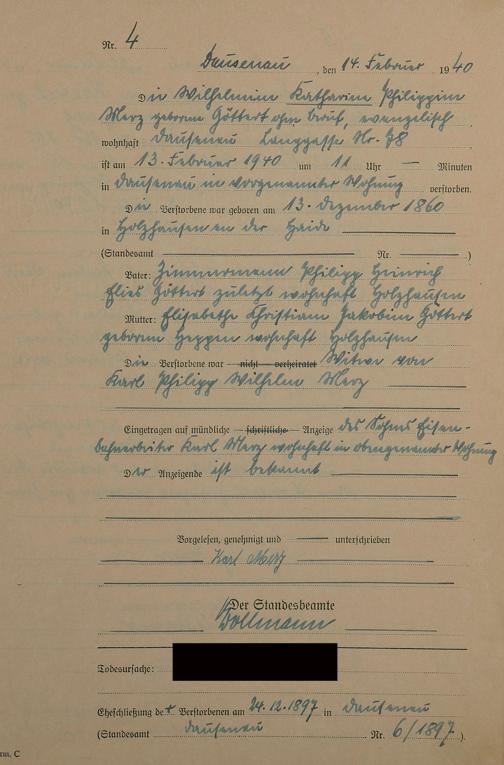 Nr. 4
Dausenau, den 14. Februar 1940
Die Wilhelmine Katharine Philippine
Merz geborene Göttert ohne Beruf, evangelisch
wohnhaft Dausenau Langgasse Nr. 78
ist am 13. Februar 1940 um 11 Uhr — Minuten
in Dausenau in vorgenannter Wohnung verstorben.
Die Verstorbene war geboren am 13. Dezember 1860
in Holzhausen an der Haide
(Standesamt — Nr. —)
Vater: Zimmermann Philipp Heinrich
Elias Göttert zuletzt wohnhaft Holzhausen
Mutter: Elisabethe Christiane Jakobine Göttert
geborene Heppen wohnhaft Holzhausen
Die Verstorbene war — nicht — verheiratet Witwe von
Karl Philipp Wilhelm Merz
Eingetragen auf mündliche — schriftliche — Anzeige des Sohnes Eisen-
bahnarbeiter Karl Merz wohnhaft in obengenannter Wohnung
Der Anzeigende ist bekannt
Vorgelesen, genehmigt und — unterschrieben
Karl Merz
Der Standesbeamte
Dollmann
Todesursache:
Eheschließung der Verstorbenen am 24.12.1897 in Dausenau
(Standesamt Dausenau Nr. 6/1897).
rm. C